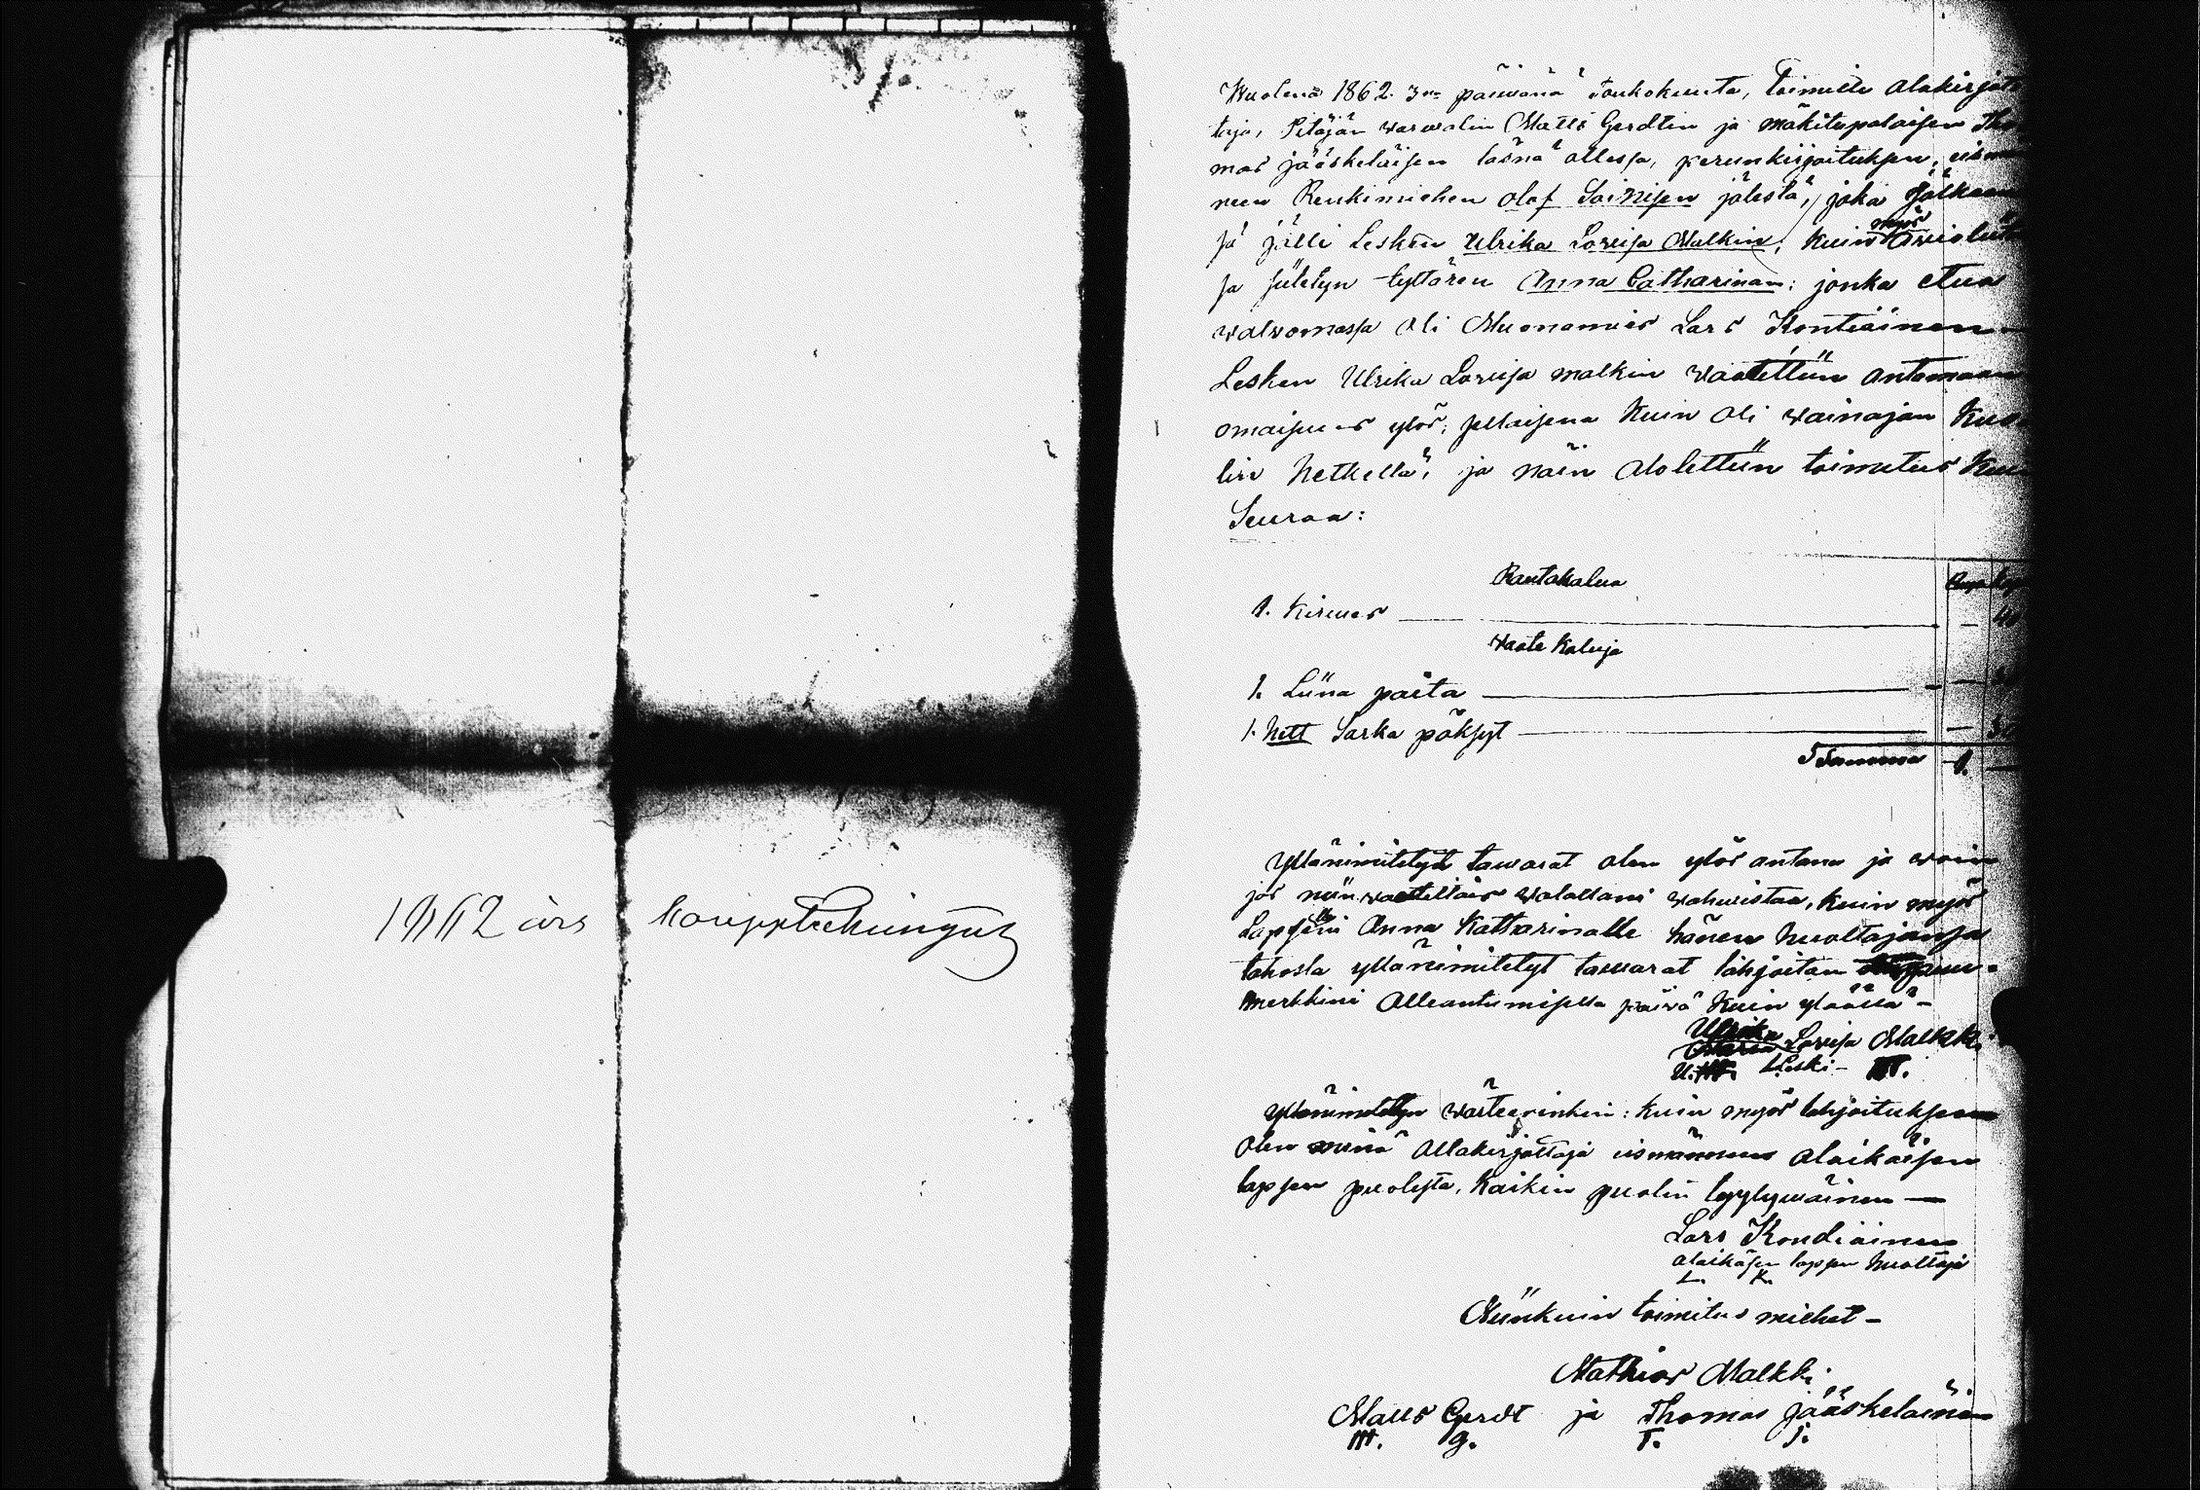 1862 års bouppteckningar
Wuolena 1862. 3na päiwänä Toukokuuta, toimitti alakirjoit
taja, Pitäjän warwalin Matts Gerdtin ja mäkitupalaisen Tho
mas jääskeläisen läsnä ollessa, perunkirjoituksen,
neen Renkimiehen Olof Soinisen jälestä, joka jälkeen
sä jätti Lesken Ulrika Lovisa Malkin, kuin myös
ja sületyn tyttären Anna Catharinan: jonka etua
walwomassa oli Muonamies Lars Kontiäinen
Lesken Ulrika Lovisa malkin waatettiin antamaan
omaisuus ylös, sellaisena kuin oli wainajan kuo
lin hetkellä, ja näin alolettiin toimitus kuin
Seuraa:
Rautakalua
1. kirwes — 40
waate kaluja
1. Liina paita —
1. hett Sarka pöksyt — —
Summa 1. —
Yllänimitetyt tawarat olen ylös antana ja woin
jos niin waatittais walallani wahwistaa, kuin myös
Lapseni Anna Katharinalle hänen huoltajansa
tahosta yllänimitetyt tawarat lahjoitan
merkkini alleantamisella päiwä kuin ylöällä –
Ulrika Lovisa Malkki
Leski –
Yllänimitetyn wärteerinkin: kuin myös lahjoituksen
olen minä allakirjottaja alaikäisen
lapsen puolesta, kaikin puolin tyytywäinen —
Lars Kondiäinen
alaikäsen lapsen huoltaja
L. K.
Niinkuin toimitus miehet –
Mathias Malkki
Matts Gerdt ja Thomas jääskeläinen
M. G. T. J.